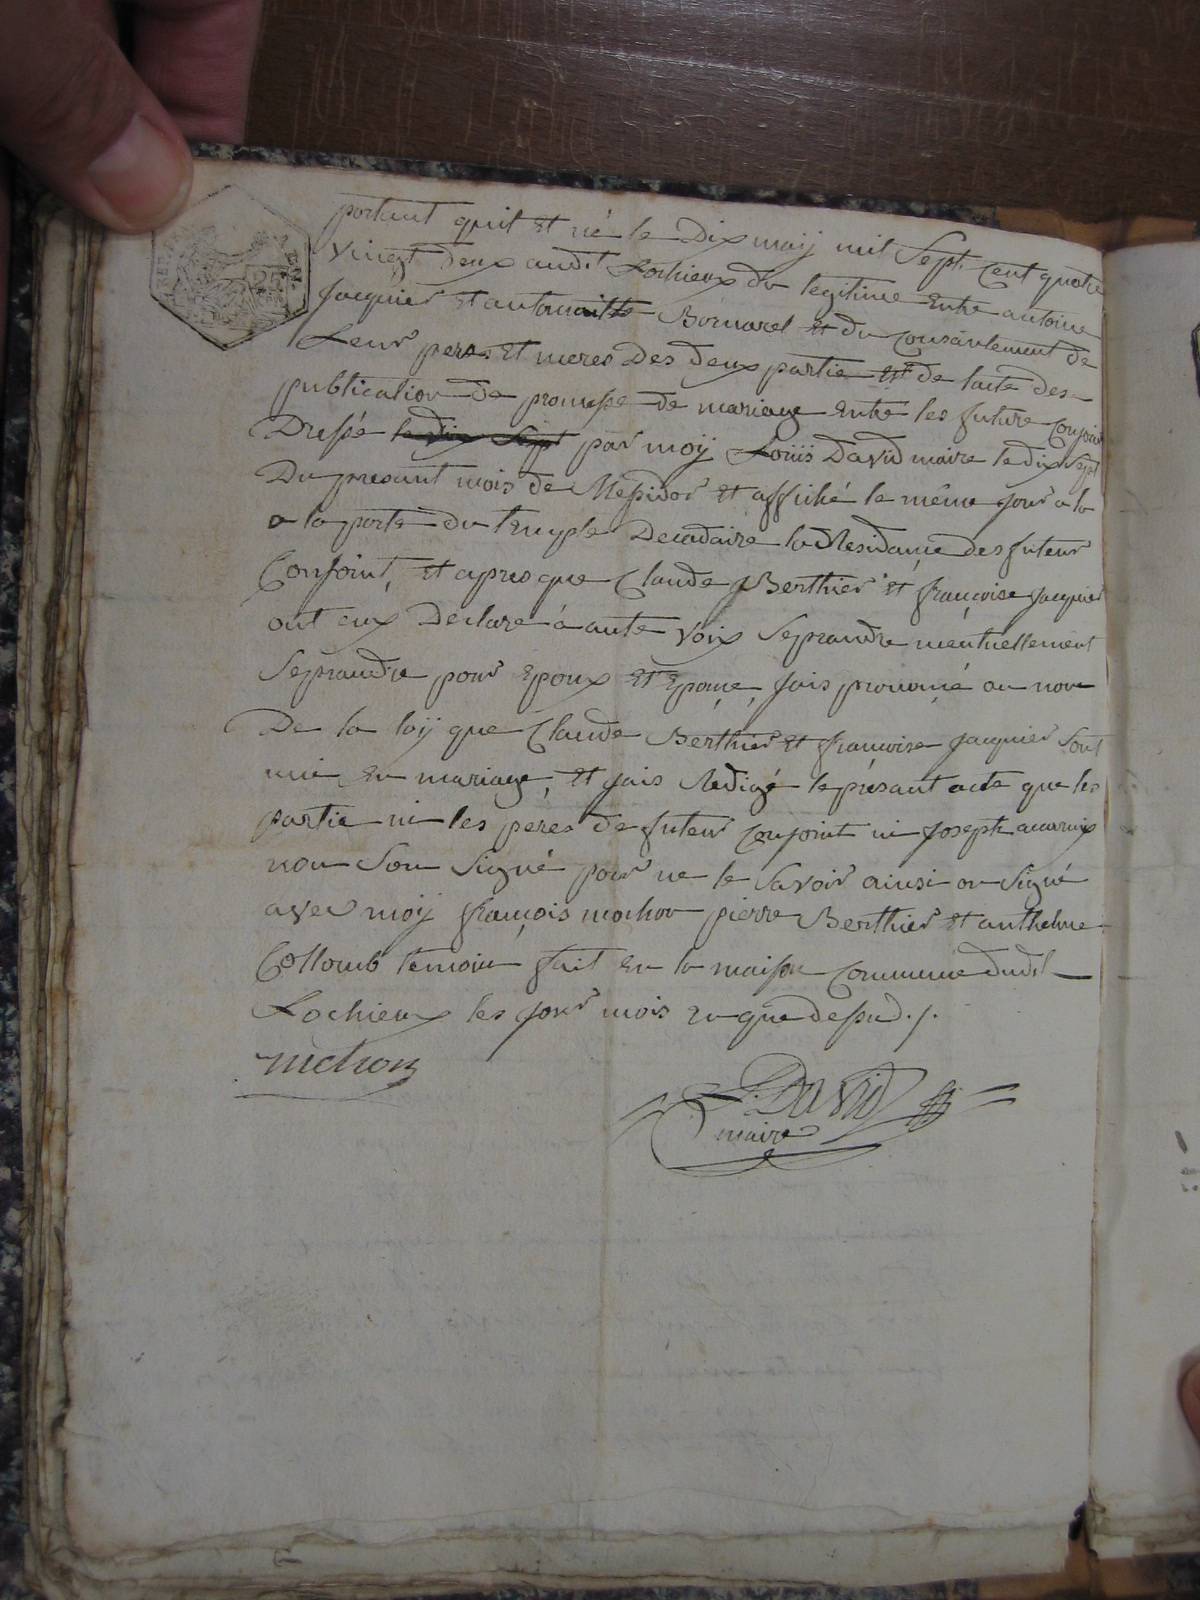 portant quil Et né le Dix maÿ mil Sept Cent quatre
Vinegt Deux audit Lochieux du legitime Entre antoine
Jacquier Et antoinette Bornarel Et du Consantement de
Leur peres Et meres Des deux partie Et de lacte des
publication de promesse de mariage Entre les future Conjoint
Dressé le dix Sept par moÿ Loüis David maire le dix Sept
Du presant mois de Messidor Et affiché le même jour a la
a la porte du temple Decadaire la Residance des futeur
Conjoint, Et apres que Claude Berthier Et françoise Jacquier
ont eux Declare a aute voix Seprandre meutuellement
Seprandre pour Epoux Et Epouse, jais prononcé au nom
De la loÿ que Claude Berthier Et françoise Jacquier Sont
unie En mariage, Et jais Redigé le présant acte que les
partie ni les peres de futeur Conjoint ni Joseph
non Son Signé pour ne le Savoir ainsi on Signé
avec moÿ françois mochon pierre Berthier Et anthelme
Collomb temoin fait En la maison Commune dudit
Lochieux les jour mois En que dessud./.
mchon
L. DaVid
maire